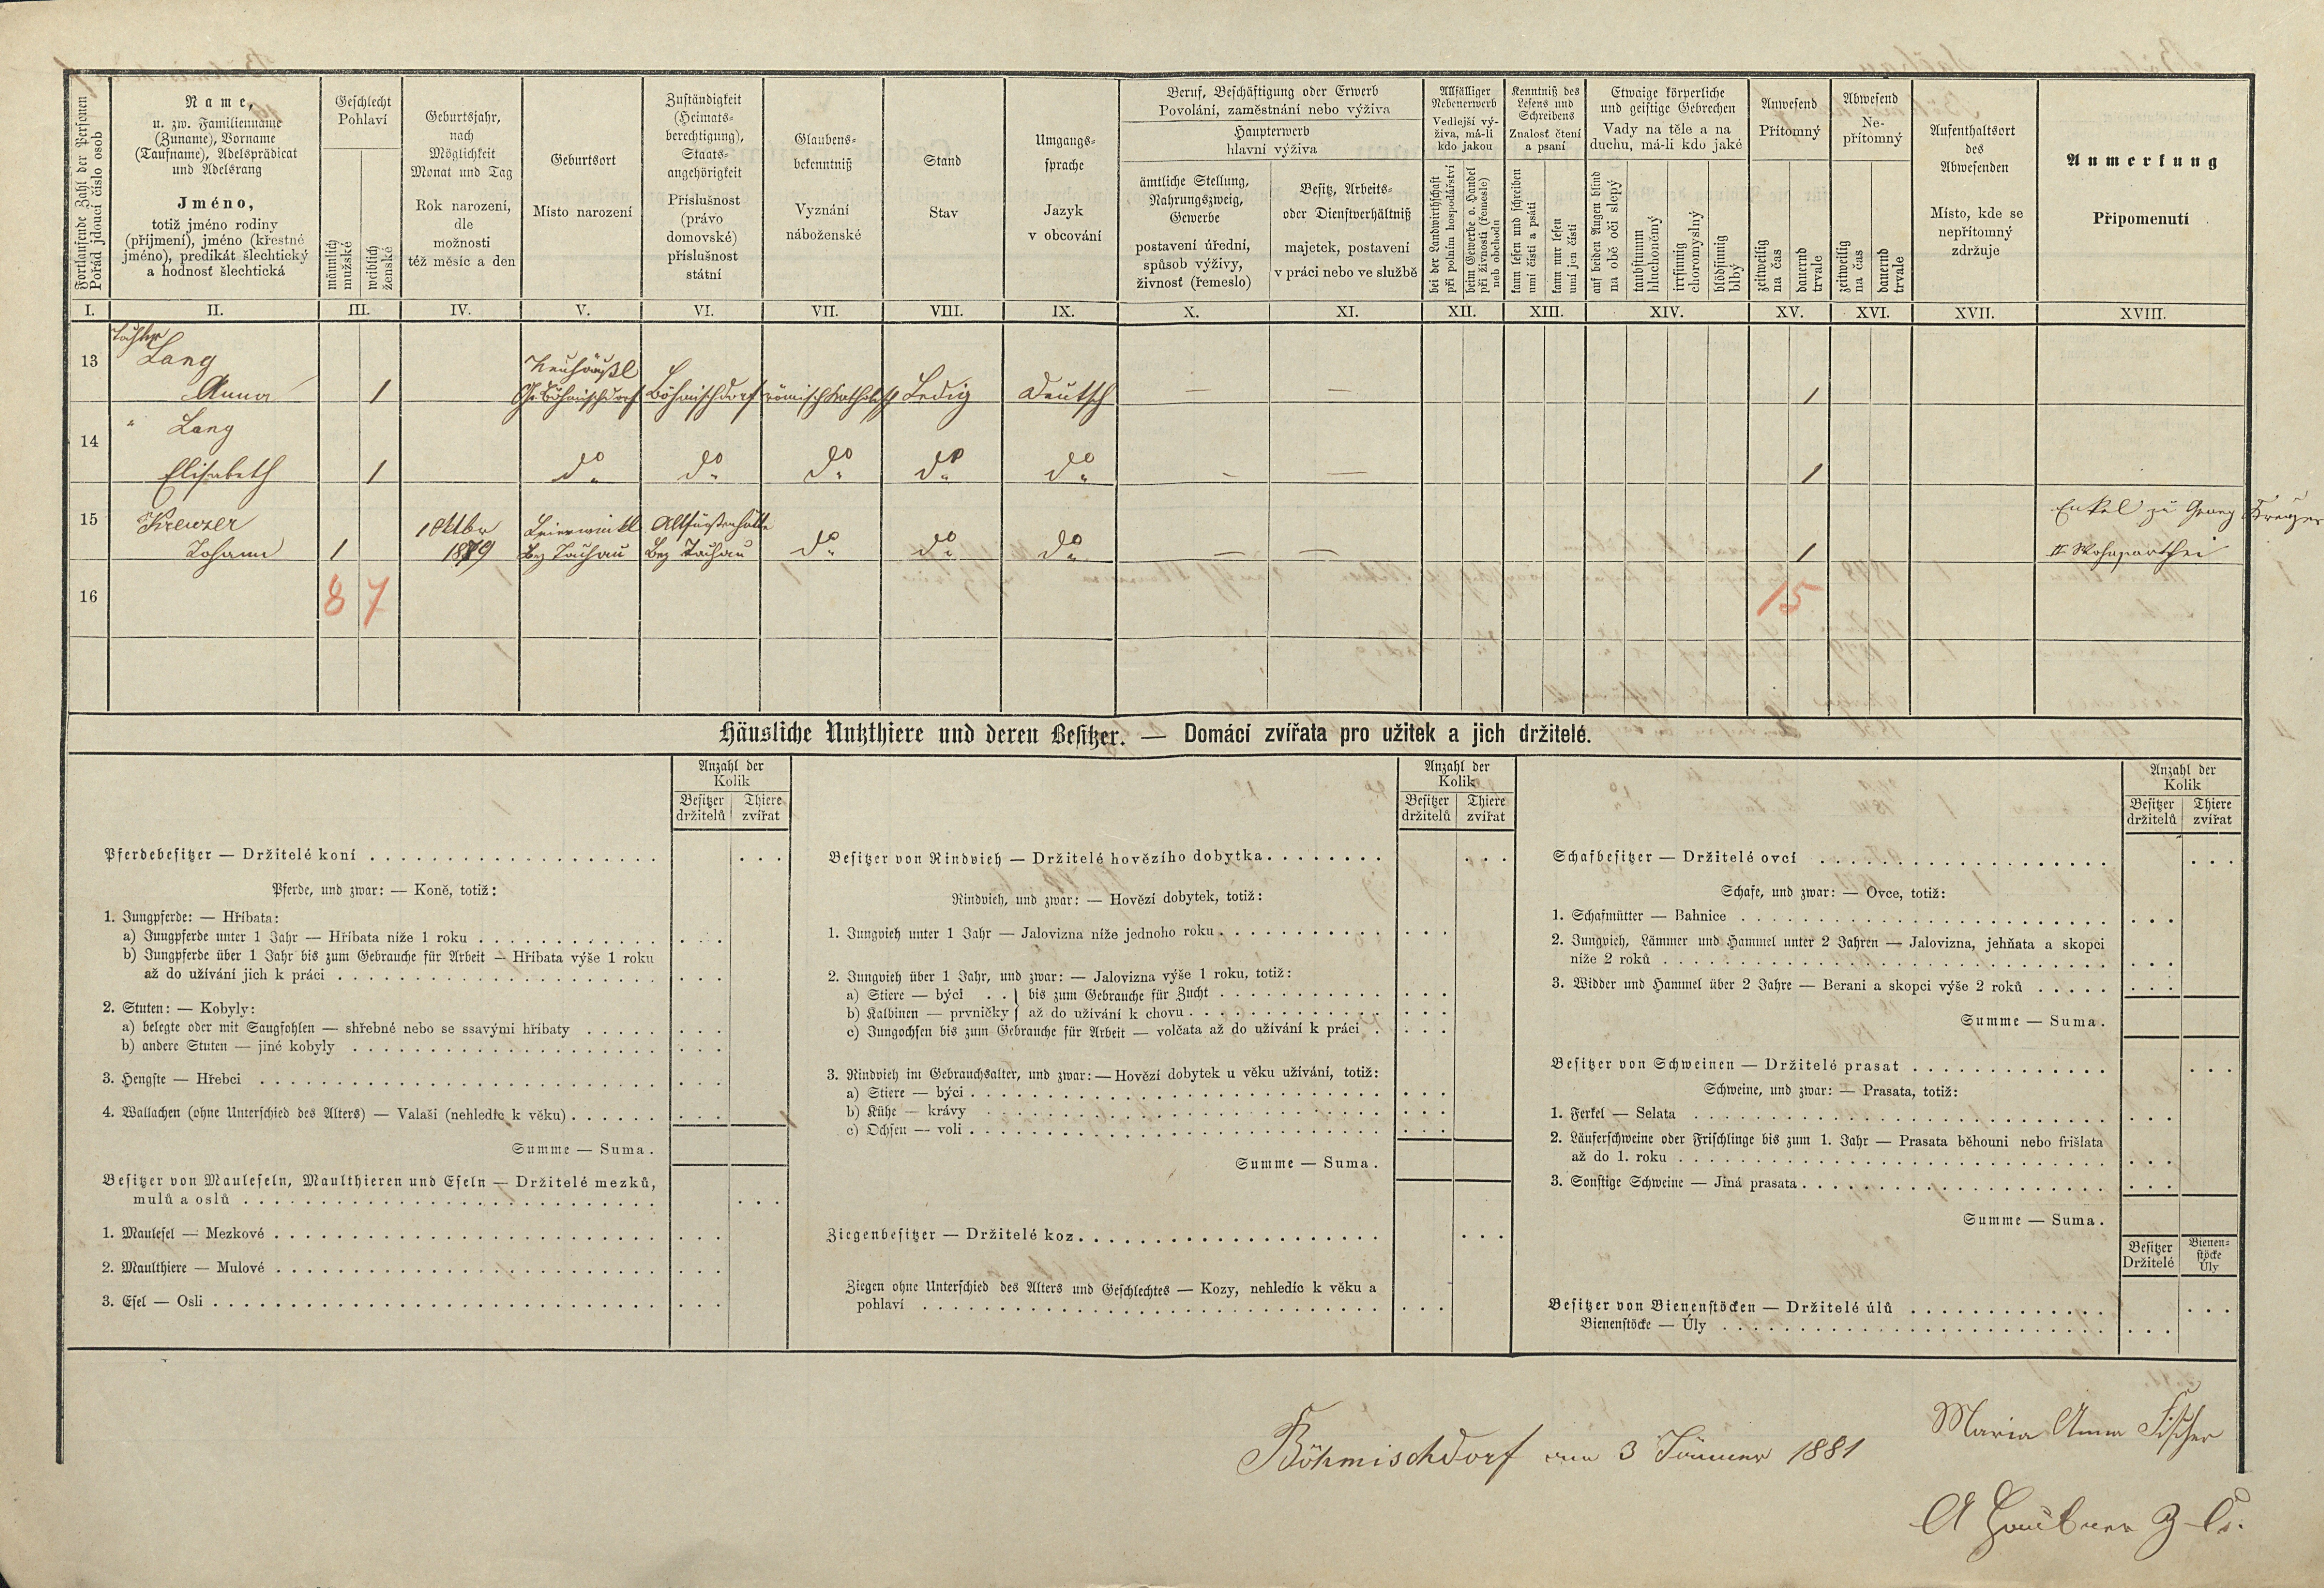 Fortlaufende Zahl der Personen
Pořád jdoucí číslo osob
Name,
u. zw. Familienname
(Zuname), Vorname
(Taufname), Adelsprädicat
und Adelsrang
Jméno,
totiž jméno rodiny
(příjmení), jméno (křestné
jméno), predikát šlechtický
a hodnosť šlechtická
Geschlecht
Pohlaví
männlich
mužské
weiblich
ženské
Geburtsjahr,
nach
Möglichkeit
Monat und Tag
Rok narození,
dle
možnosti
též měsíc a den
Geburtsort
Místo narození
Zuständigkeit
(Heimats-
berechtigung),
Staats-
angehörigkeit
Příslušnost
(právo
domovské)
příslušnost
státní
Glaubens-
bekenntniß
Vyznání
náboženské
Stand
Stav
Umgangs-
sprache
Jazyk
v obcování
Beruf, Beschäftigung oder Erwerb
Povolání, zaměstnání nebo výživa
Haupterwerb
hlavní výživa
ämtliche Stellung,
Nahrungszweig,
Gewerbe
postavení úřední,
spůsob výživy,
živnosť (řemeslo)
Besitz, Arbeits-
oder Dienstverhältniß
majetek, postavení
v práci nebo ve službě
Allfälliger
Nebenerwerb
Vedlejší vý-
živa, má-li
kdo jakou
bei der Landwirthschaft
při polním hospodářství
beim Gewerbe o. Handel
při živnosti (řemeslo)
neb obchodu
Kenntniß des
Lesens und
Schreibens
Znalosť čtení
a psaní
kann lesen und schreiben
umí čísti a psáti
kann nur lesen
umí jen čísti
Etwaige körperliche
und geistige Gebrechen
Vady na těle a na
duchu, má-li kdo jaké
auf beiden Augen blind
na obě oči slepý
taubstumm
hluchoněmý
irrsinnig
choromyslný
blödsinnig
blbý
Anwesend
Přítomný
zeitweilig
na čas
dauernd
trvale
Abwesend
Ne-
přítomný
zeitweilig
na čas
dauernd
trvale
Aufenthaltsort
des
Abwesenden
Místo, kde se
nepřítomný
zdržuje
Anmerkung
Připomenutí
I. II. III. IV. V. VI. VII. VIII. IX. X. XI. XII. XIII. XIV. XV. XVI. XVII. XVIII.
Tochter
13 Lang Neuhäußl
Anna 1 Böhmischdorf Böhmischdorf römisch katholisch Ledig Deutsch — — 1
14 " Lang
Elisabeth 1 do do do do do — — 1
15 Kreuzer 1 Oktbr Altfürstenhütte Enkel zu Georg Kreuzer
Johann 1 1879 Bez Tachau Bez Tachau do do do — — 1 II Wohnparthei
16 8 7 15
Häusliche Nutzthiere und deren Besitzer. — Domácí zvířata pro užitek a jich držitelé.
Anzahl der
Kolik
Besitzer
držitelů
Thiere
zvířat
Pferdebesitzer — Držitelé koní
Pferde, und zwar: — Koně, totiž:
1. Jungpferde: — Hříbata:
a) Jungpferde unter 1 Jahr — Hříbata níže 1 roku
b) Jungpferde über 1 Jahr bis zum Gebrauche für Arbeit — Hříbata výše 1 roku
až do užívání jich k práci
2. Stuten: — Kobyly:
a) belegte oder mit Saugfohlen — shřebné nebo se ssavými hříbaty
b) andere Stuten — jiné kobyly
3. Hengste — Hřebci
4. Wallachen (ohne Unterschied des Alters) — Valaši (nehledíc k věku)
Summe — Suma.
Besitzer von Mauleseln, Maulthieren und Eseln — Držitelé mezků,
mulů a oslů
1. Maulesel — Mezkové
2. Maulthiere — Mulové
3. Esel — Osli
Anzahl der
Kolik
Besitzer
držitelů
Thiere
zvířat
Besitzer von Rindvieh — Držitelé hovězího dobytka
Rindvieh, und zwar: — Hovězí dobytek, totiž:
1. Jungvieh unter 1 Jahr — Jalovizna níže jednoho roku
2. Jungvieh über 1 Jahr, und zwar: — Jalovizna výše 1 roku, totiž:
a) Stiere — býci . . } bis zum Gebrauche für Zucht
b) Kalbinen — prvničky } až do užívání k chovu
c) Jungochsen bis zum Gebrauche für Arbeit — volčata až do užívání k práci
3. Rindvieh im Gebrauchsalter, und zwar: — Hovězí dobytek u věku užívání, totiž:
a) Stiere — býci
b) Kühe — krávy
c) Ochsen — voli
Summe — Suma.
Ziegenbesitzer — Držitelé koz
Ziegen ohne Unterschied des Alters und Geschlechtes — Kozy, nehledíc k věku a
pohlaví
Anzahl der
Kolik
Besitzer
držitelů
Thiere
zvířat
Schafbesitzer — Držitelé ovcí
Schafe, und zwar: — Ovce, totiž:
1. Schafmütter — Bahnice
2. Jungvieh, Lämmer und Hammel unter 2 Jahren — Jalovizna, jehňata a skopci
níže 2 roků
3. Widder und Hammel über 2 Jahre — Berani a skopci výše 2 roků
Summe — Suma.
Besitzer von Schweinen — Držitelé prasat
Schweine, und zwar: — Prasata, totiž:
1. Ferkel — Selata
2. Läuferschweine oder Frischlinge bis zum 1. Jahr — Prasata běhouni nebo frišlata
až do 1. roku
3. Sonstige Schweine — Jiná prasata
Summe — Suma.
Besitzer
Držitelé
Bienen-
stöcke
Úly
Besitzer von Bienenstöcken — Držitelé úlů
Bienenstöcke — Úly
Maria Anna Fischer
Böhmischdorf am 3 Jänner 1881